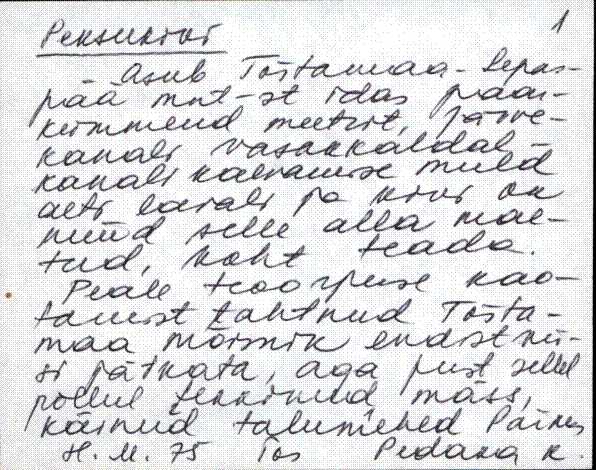 1
Peksukivi
Asub Tõstamaa-Lepas-
pää mnt-st idas paar-
kümmend meetrit, järve-
kanali vasakkaldal -
kanali kaevamise muld
aeti laiali ja kivi on
nüüd selle alla mae-
tud, koht teada.
Peale teoorjuse kao-
tamist tahtnud Tõsta-
maa mõisnik endist vii-
si jätkata, aga just sellel
põllul tekkinud mäss,
käinud talumehed Pärnus
H. M. 75 Tõs Pedaka k.